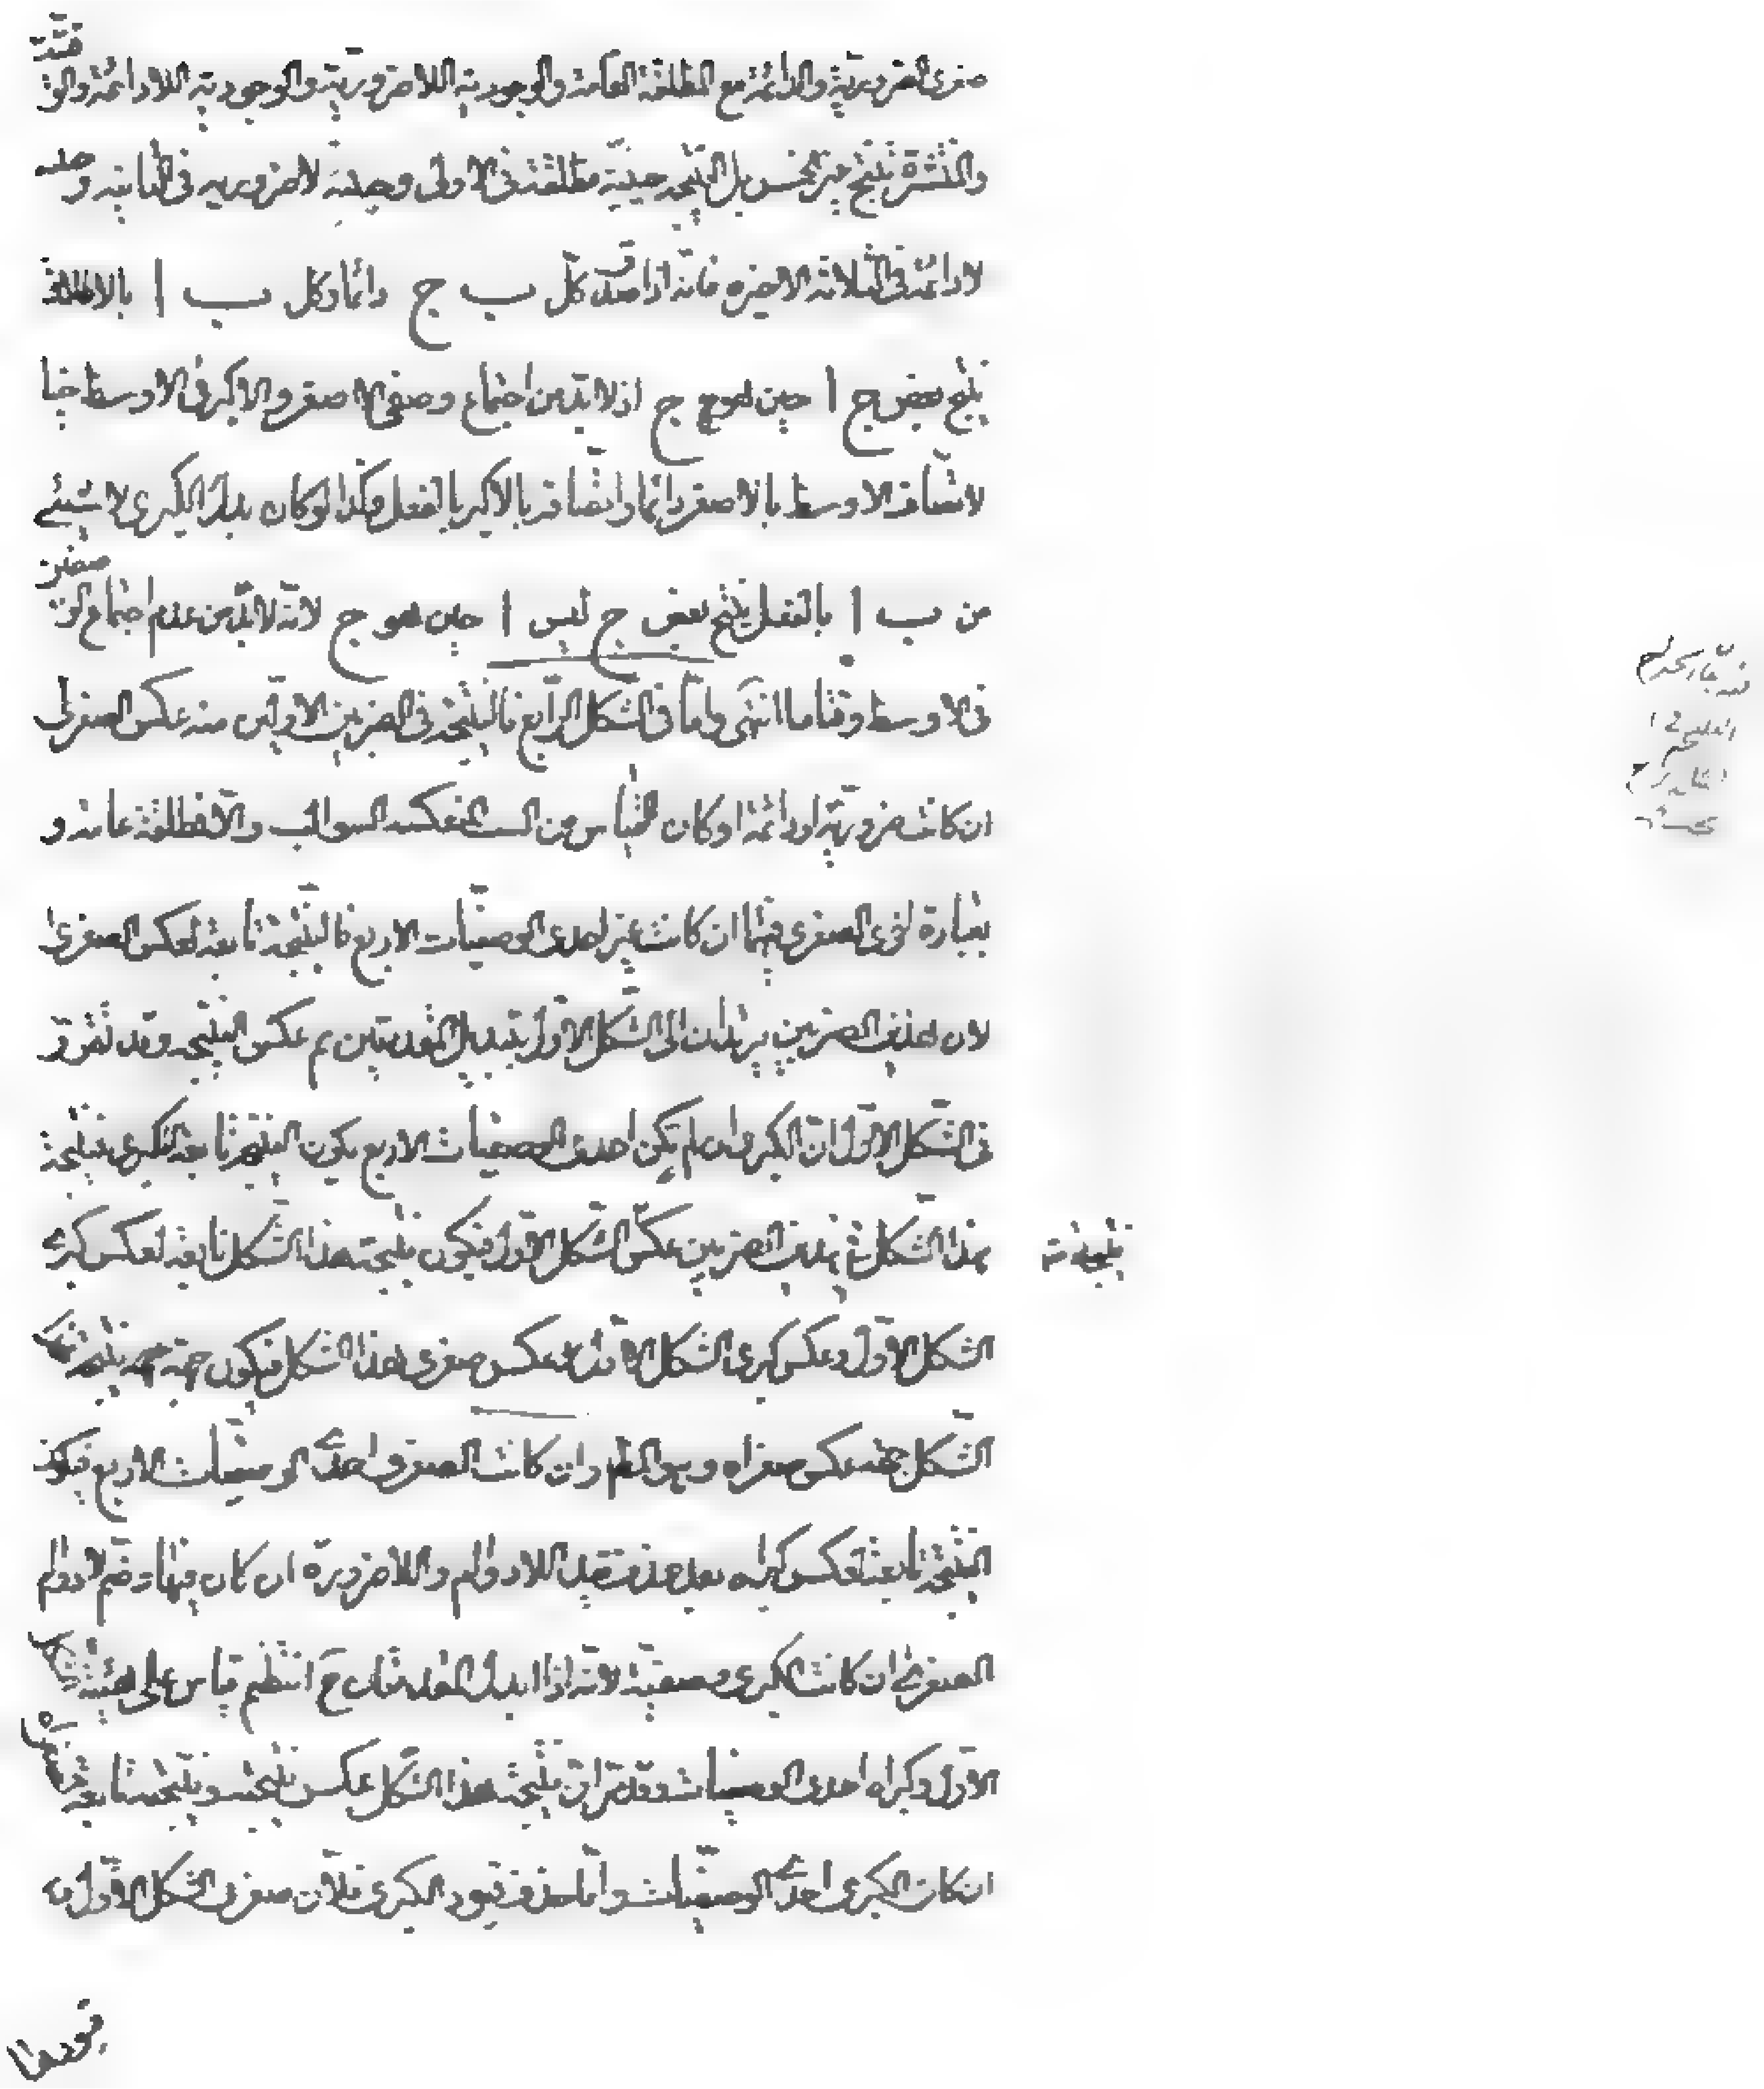 صغرى الضرورية والدائمة مع المطلقة العامة والوجودية اللاضرورية والوجودية اللادائمة والوقتية
والمنتشرة ينتج غير الخمس بل النتيجة حينية مطلقة في الاولى وحينية لاضرورية في الثانية وحينية
لادائمة في الثلاثة الاخيرة فانه اذا صدق كل ب ج دائما وكل ب ا بالاطلاق
ينتج بعض ج ا حين هو ج اذ لا بد من اجتماع وصفي الاصغر والاكبر في الاوسط حينا
لاتصاف الاوسط بالاصغر دائما واتصافه بالاكبر بالفعل وكذا لو كان بدل الكبرى لا شيئ
من ب ا بالفعل ينتج بعض ج ليس ا حين هو ج لانه لا بد من عدم اجتماع الوصفين
في الاوسط وقتا ما انتهى واما في الشكل الرابع فالنتيجة في الضربين الاولين منه عكس الصغرى
ان كانت ضرورية او دائمة او كان القياس من الست المنعكسة السوالب والا فمطلقة عامة و
بعبارة اخرى الصغرى فيهما ان كانت غير احدى الوصفيات الاربع فالنتيجة تابعة لعكس الصغرى
لان هذين الضربين يرتدان الى الشكل الاول بتبديل المقدمتين ثم عكس النتيجة وقد تقرر
في الشكل الاول ان الكبرى ان لم تكن احدى الوصفيات الاربع يكون النتيجة تابعة للكبرى فنتيجة
هذا الشكل في هذين الضربين عكس الشكل الاول فيكون نتيجة هذا الشكل تابعة لعكس كبرى
نتيجة
الشكل الاول وعكس كبرى الشكل الاول عكس صغرى هذا الشكل فيكون جهة نتيجة هذا
الشكل جهة عكس صغراه وهو المط وان كانت الصغرى احدى الوصفيات الاربع فيكون
النتيجة تابعة لعكس كبراه بعد حذف قيد اللادوام واللاضرورة ان كان فيها وضم لادوام
الصغرى ان كانت الكبرى وصفية لانه اذا ابدل المقدمتان ح انتظم قياس على هيئة شكل
الاول وكبراه احدى الوصفيات وقد مر ان نتيجة هذا الشكل عكس نتيجته ونتيجته تابعة صغراه
ان كان الكبرى احدى الوصفيات واما حذف قيود الكبرى فلان صغرى الشكل الاول
قيودها